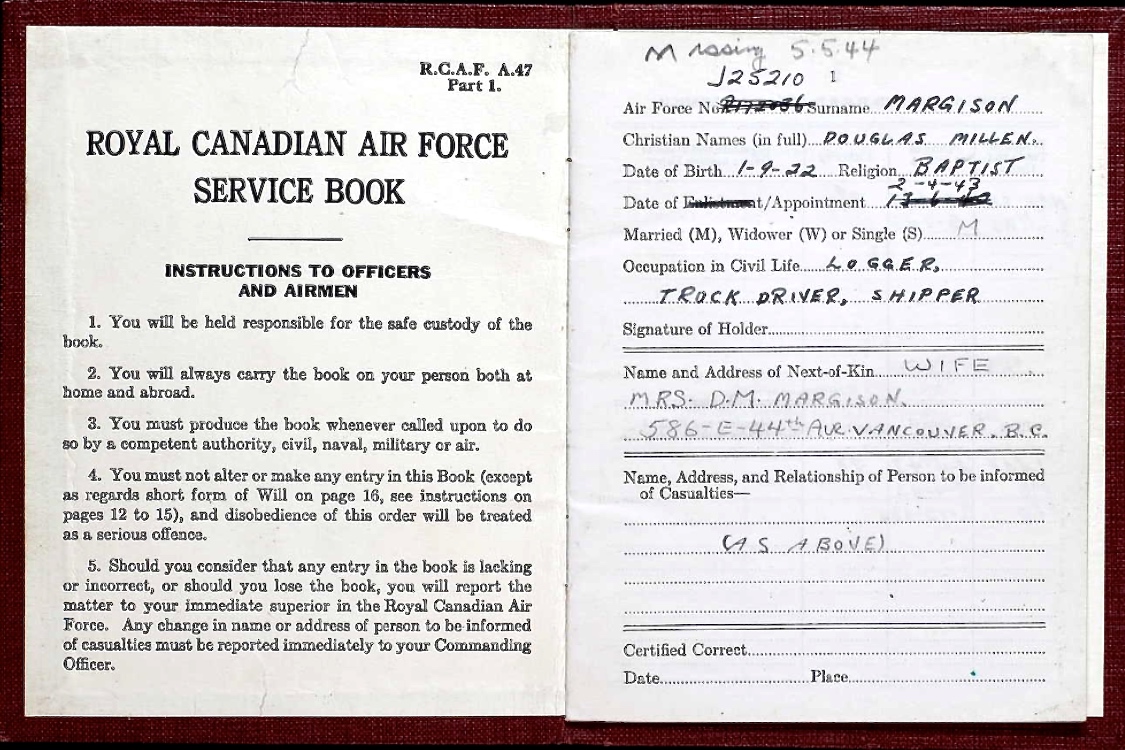 R.C.A.F. A.47
Part 1.
ROYAL CANADIAN AIR FORCE
SERVICE BOOK
INSTRUCTIONS TO OFFICERS
AND AIRMEN
1. You will be held responsible for the safe custody of the
book.
2. You will always carry the book on your person both at
home and abroad.
3. You must produce the book whenever called upon to do
so by a competent authority, civil, naval, military or air.
4. You must not alter or make any entry in this Book (except
as regards short form of Will on page 16, see instructions on
pages 12 to 15), and disobedience of this order will be treated
as a serious offence.
5. Should you consider that any entry in the book is lacking
or incorrect, or should you lose the book, you will report the
matter to your immediate superior in the Royal Canadian Air
Force. Any change in name or address of person to be informed
of casualties must be reported immediately to your Commanding
Officer.
Missing 5.5.44
J25210 1
Air Force No. Surname MARGISON
Christian Names (in full) DOUGLAS MILLEN.
Date of Birth 1-9-22 Religion BAPTIST
2-4-43
Date of Enlistment/Appointment
Married (M), Widower (W) or Single (S) M
Occupation in Civil Life LOGGER,
TRUCK DRIVER, SHIPPER
Signature of Holder
Name and Address of Next-of-Kin WIFE
MRS. D.M. MARGISON.
586-E-44th AVE VANCOUVER. B.C.
Name, Address, and Relationship of Person to be informed
of Casualties—
(AS ABOVE)
Certified Correct
Date Place